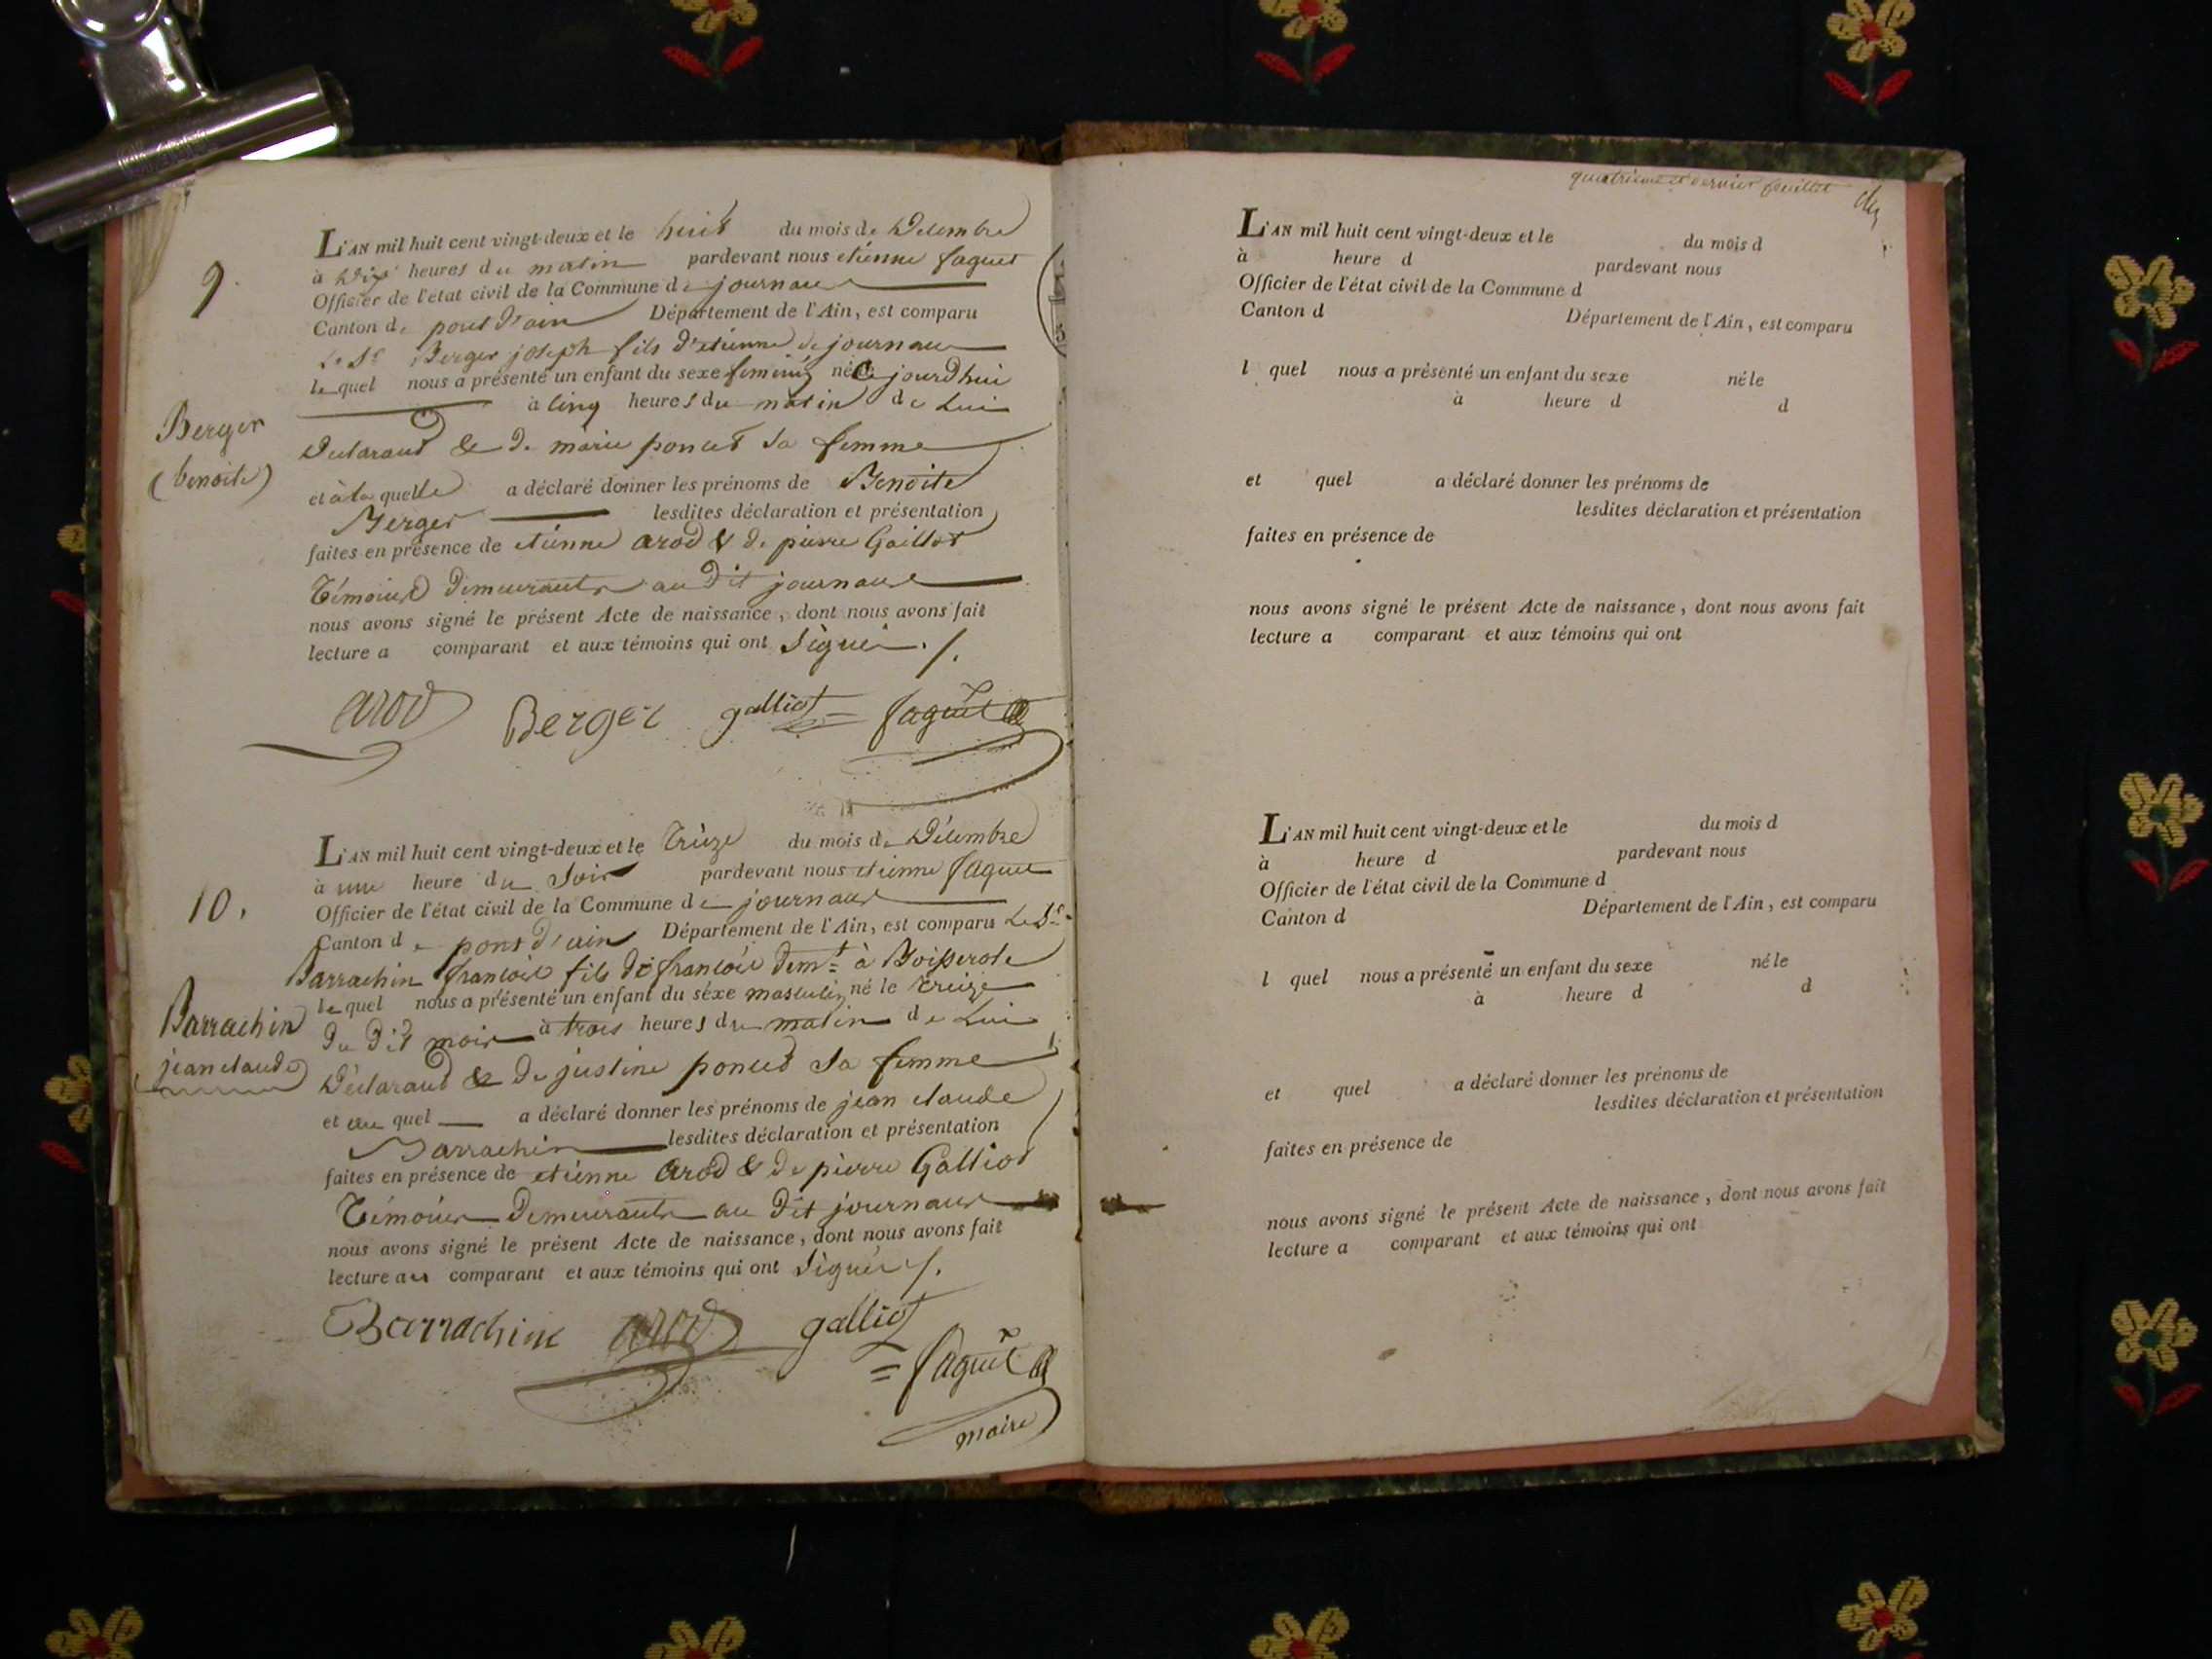 9.
L'AN mil huit cent vingt-deux et le huit du mois de Decembre
à Dix heures du matin pardevant nous etienne faguet
Officier de l'état civil de la Commune de journans
Canton de pont d'ain Département de l'Ain, est comparu
Le Sr Berger joseph fils d'etienne de journans
le quel nous a présenté un enfant du sexe feminin né Cejourd'hui
à cinq heures du matin de Lui
Berger
(benoite)
Declarant & de marie poncet sa femme
et à la quelle a déclaré donner les prénoms de Benoite
Berger lesdites déclaration et présentation
faites en présence de etienne arod & de pierre Galliot
Témoins Demeurants au Dit journans
nous avons signé le présent Acte de naissance, dont nous avons fait
lecture a comparant et aux témoins qui ont Signés ./.
arod Berger galliot faguet
10.
L'AN mil huit cent vingt-deux et le treize du mois de Décembre
à une heure du Soir pardevant nous etienne faguet
Officier de l'état civil de la Commune de journans
Canton de pont d'ain Département de l'Ain, est comparu Le Sr
Barrachin francois fils de francois demt à
le quel nous a présenté un enfant du séxe masculin né le treize
du Dit mois à trois heures du matin de Lui
Barrachin
jean claude
Déclarant & De justine poncet sa femme
et au quel a déclaré donner les prénoms de jean claude
Barrachin lesdites déclaration et présentation
faites en présence de etienne arod & de pierre Galliot
Témoins Demeurants au Dit journans
nous avons signé le présent Acte de naissance, dont nous avons fait
lecture au comparant et aux témoins qui ont Signés ./.
Barrachin arod galliot
faguet
maire
quatrième et dernier feuillet
L'AN mil huit cent vingt-deux et le du mois d
à heure d pardevant nous
Officier de l'état civil de la Commune d
Canton d Département de l'Ain, est comparu
l quel nous a présenté un enfant du sexe né le
à heure d d
et quel a déclaré donner les prénoms de
lesdites déclaration et présentation
faites en présence de
nous avons signé le présent Acte de naissance, dont nous avons fait
lecture a comparant et aux témoins qui ont
L'AN mil huit cent vingt-deux et le du mois d
à heure d pardevant nous
Officier de l'état civil de la Commune d
Canton d Département de l'Ain, est comparu
l quel nous a présenté un enfant du sexe né le
à heure d d
et quel a déclaré donner les prénoms de
lesdites déclaration et présentation
faites en présence de
nous avons signé le présent Acte de naissance, dont nous avons fait
lecture a comparant et aux témoins qui ont